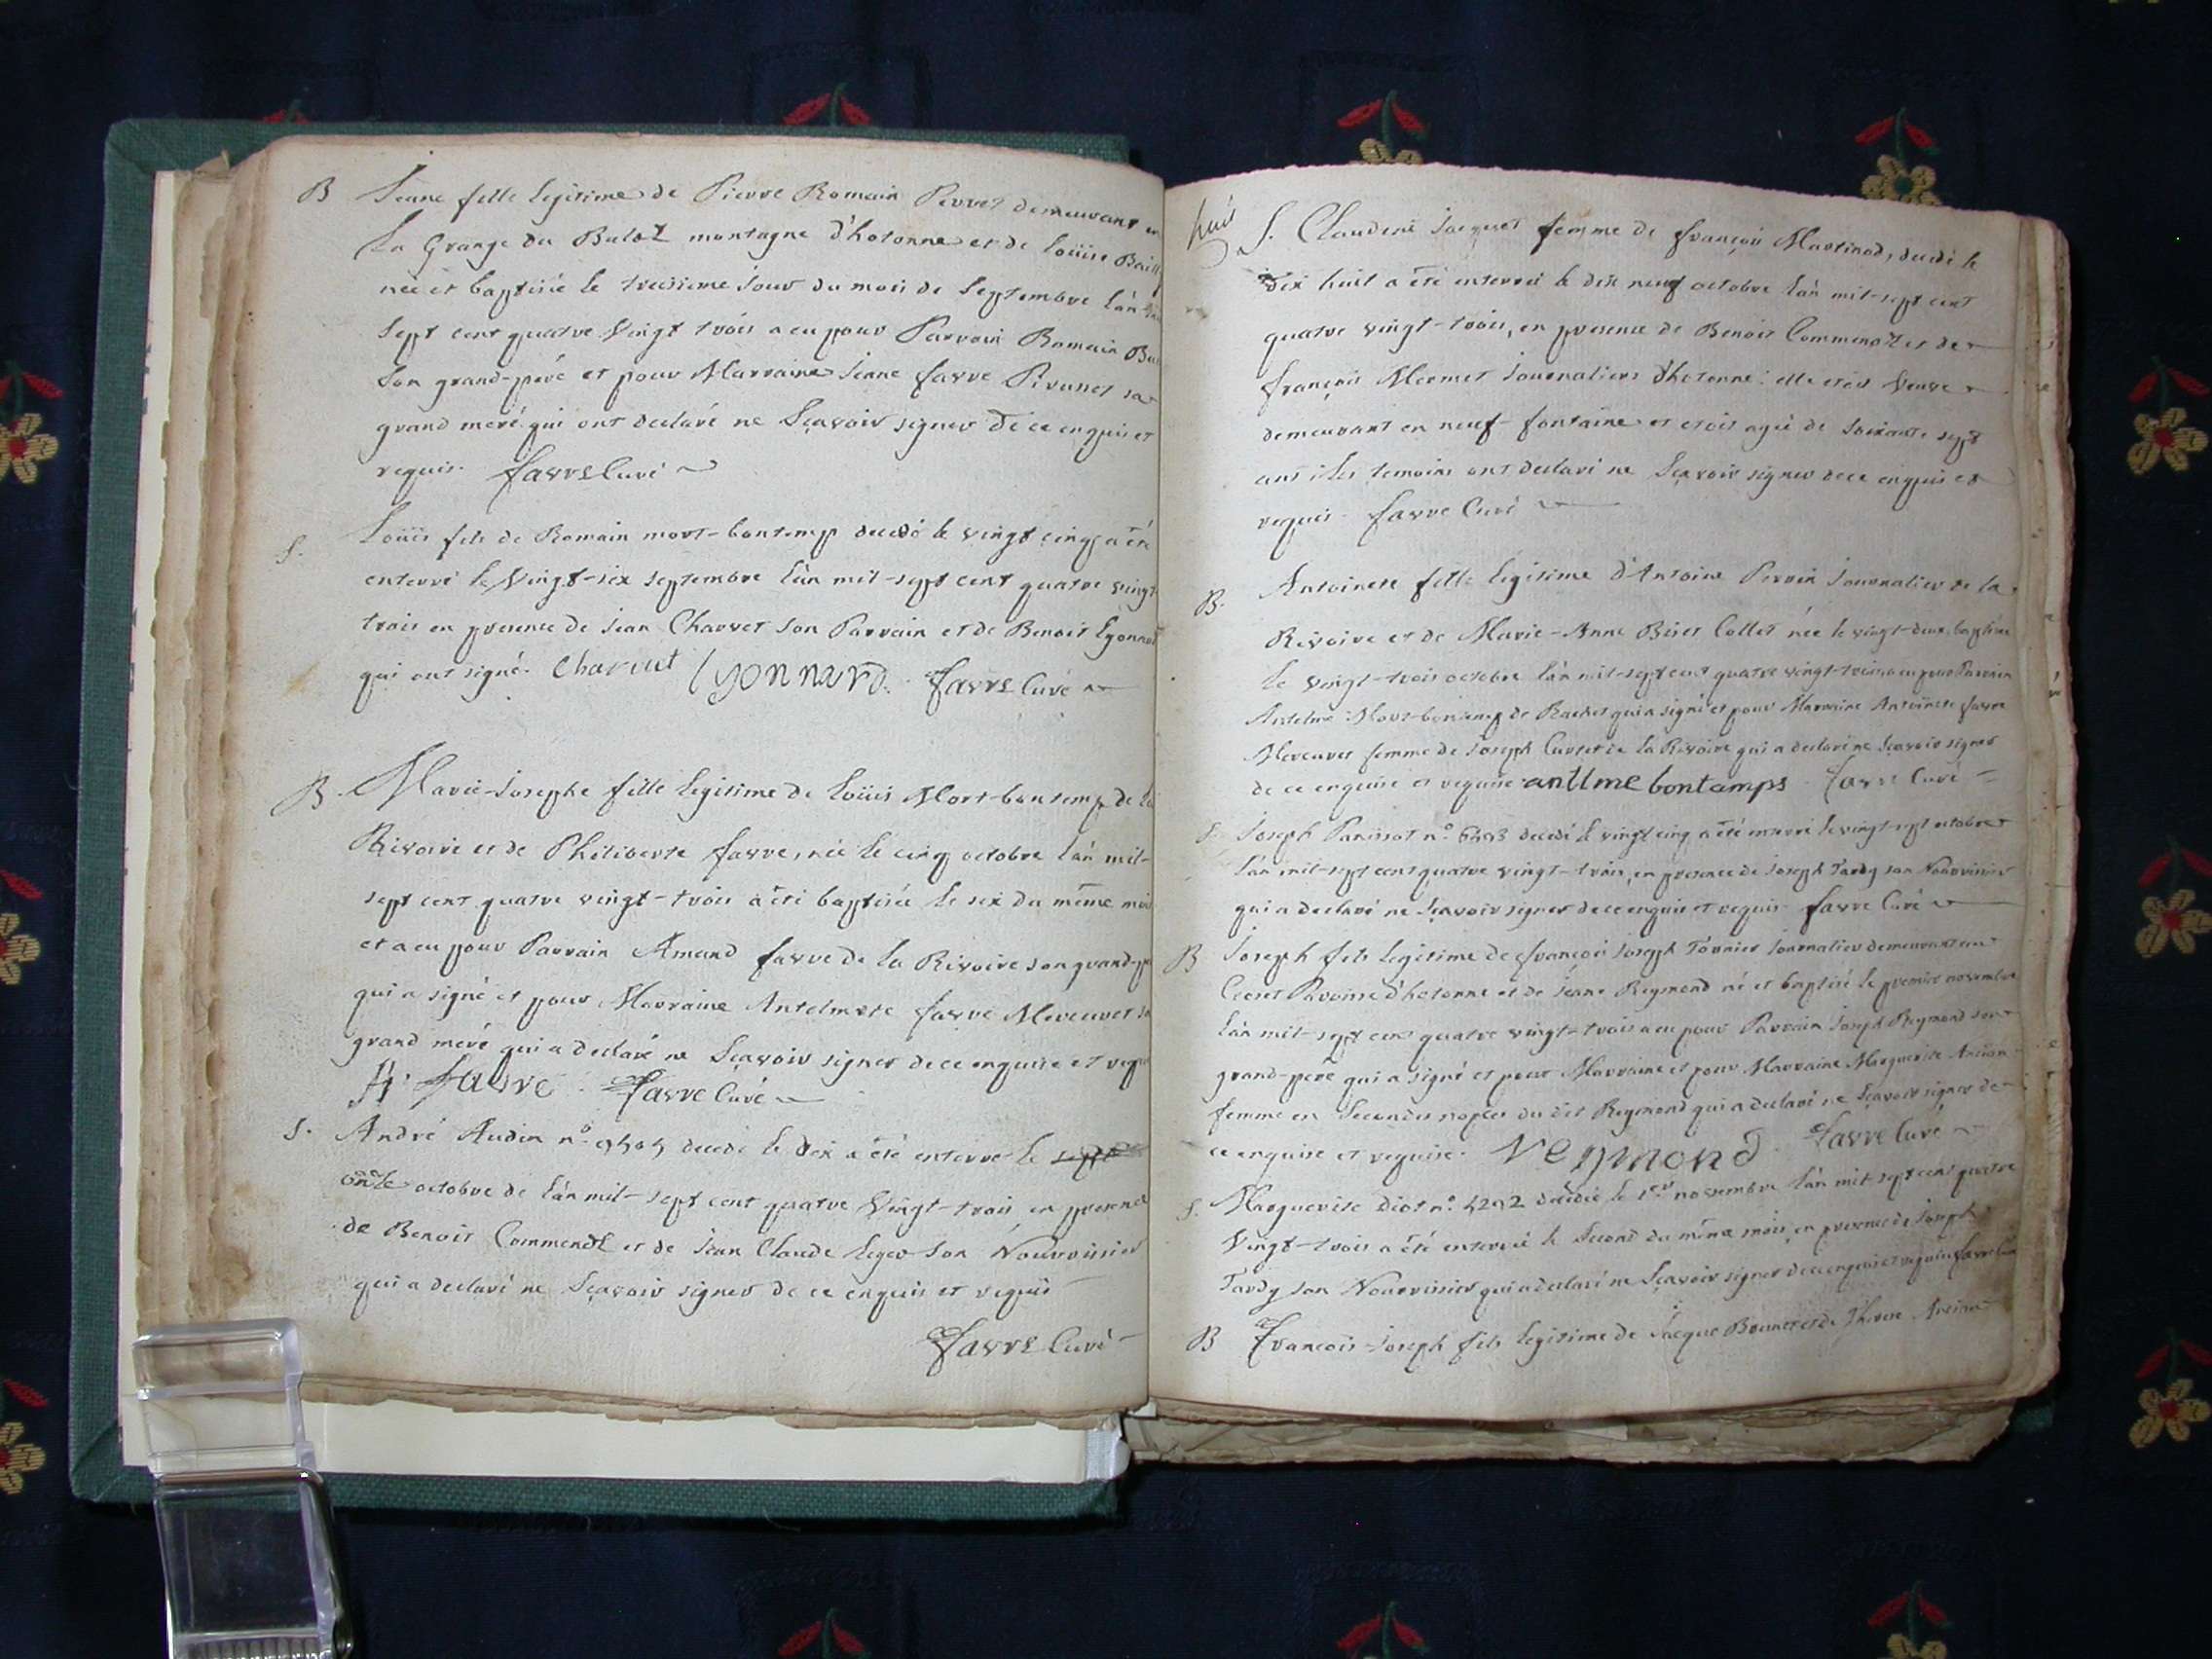 B Jeanne fille legitime de Pierre Romain Perret demeurant en
La Grange du Balot montagne d'hotonne et de Loüise
née et baptisée le treisieme jour du mois de Septembre l'an
Sept cent quatre Vingt trois a eu pour Parrain Romain
Son grand-pere et pour Marraine Jeanne favre sa
grand mere qui ont declaré ne Sçavoir signer de ce enquis et
requis. favre Curé
S. Loüis fils de Romain mort-bontemp decedé le vingt cinq a été
enterré le Vingt-six septembre l'an mil-sept cent quatre vingt
trois en presence de Jean Charvet son Parrain et de Benoit Lyonnard
qui ont signé. Charvet Lyonnard. favre Curé
B. Marie-Josephe fille legitime de Loüis Mort-bontemp de La
Rivoire et de Philiberte favre, née le cinq octobre l'an mil-
sept cent quatre vingt-trois a été baptisée le six du même mois
et a eu pour Parrain Amand favre de la Rivoire son grand-pe
qui a signé et pour Marraine Antelmete favre Mereuret sa
grand mere qui a declaré ne Sçavoir signer de ce enquise et requ
A. favre. favre Curé
S. André Audin n.º 9505 decedé le dix a été enterré le sept
onze octobre de l'an mil-sept cent quatre Vingt-trois en presence
de Benoit et de Jean Claude Leger son Nourrissier
qui a declaré ne Sçavoir signer de ce enquis et requis
favre Curé
huit
S. Claudine Jacquet femme de françois Martinod, decedé le
dix huit a été enterrée le dix neuf octobre l'an mil-sept cent
quatre vingt-trois, en presence de Benoit et de
françois Mermet Journaliers d'hotonne: elle etoit Veuve
demeurant en neuf-fontaine et etoit agée de soixante sept
ans: Les temoins ont declaré ne Sçavoir signer de ce enquis et
requis. favre Curé
B. Antoinete fille legitime d'Antoine Perrin Journalier de la
Rivoire et de Marie-Anne Collet née le vingt-deux, baptisée
le vingt-trois octobre l'an mil-sept cent quatre vingt-trois a eu pour Parrain
Antelme Mort-bontemp de Rachet qui a signé et pour Marraine Antoinete favre
Mereuret femme de Joseph de la Rivoire qui a declaré ne Sçavoir signer
de ce enquise et requise antlme bontamps. favre Curé
S. Joseph Parissot n.º decedé le vingt cinq a été enterré le vingt sept octobre
l'an mil-sept cent quatre vingt-trois, en presence de Joseph Tardy son Nourrissier
qui a declaré ne Sçavoir signer de ce enquis et requis. favre Curé
B Joseph fils legitime de françois Joseph Journalier demeurant en
Paroisse d'hotonne et de Jeane Reymond né et baptisé le premier novembre
l'an mil-sept cent quatre vingt-trois a eu pour Parrain Joseph Reymond son
grand-pere qui a signé et pour Marraine et pour Marraine Marguerite
femme en Secondes nopces du dit Reymond qui a declaré ne Sçavoir signer de
ce enquise et requise. reymond. favre Curé
S. Marguerite Diot n.º 4292 decedée le 1.er novembre l'an mil-sept cent quatre
Vingt-trois a été enterrée le Second du même mois, en presence de Joseph
Tardy son Nourrissier qui a declaré ne Sçavoir signer de ce enquis et requis favre Curé
B françois-Joseph fils legitime de Jacque et de